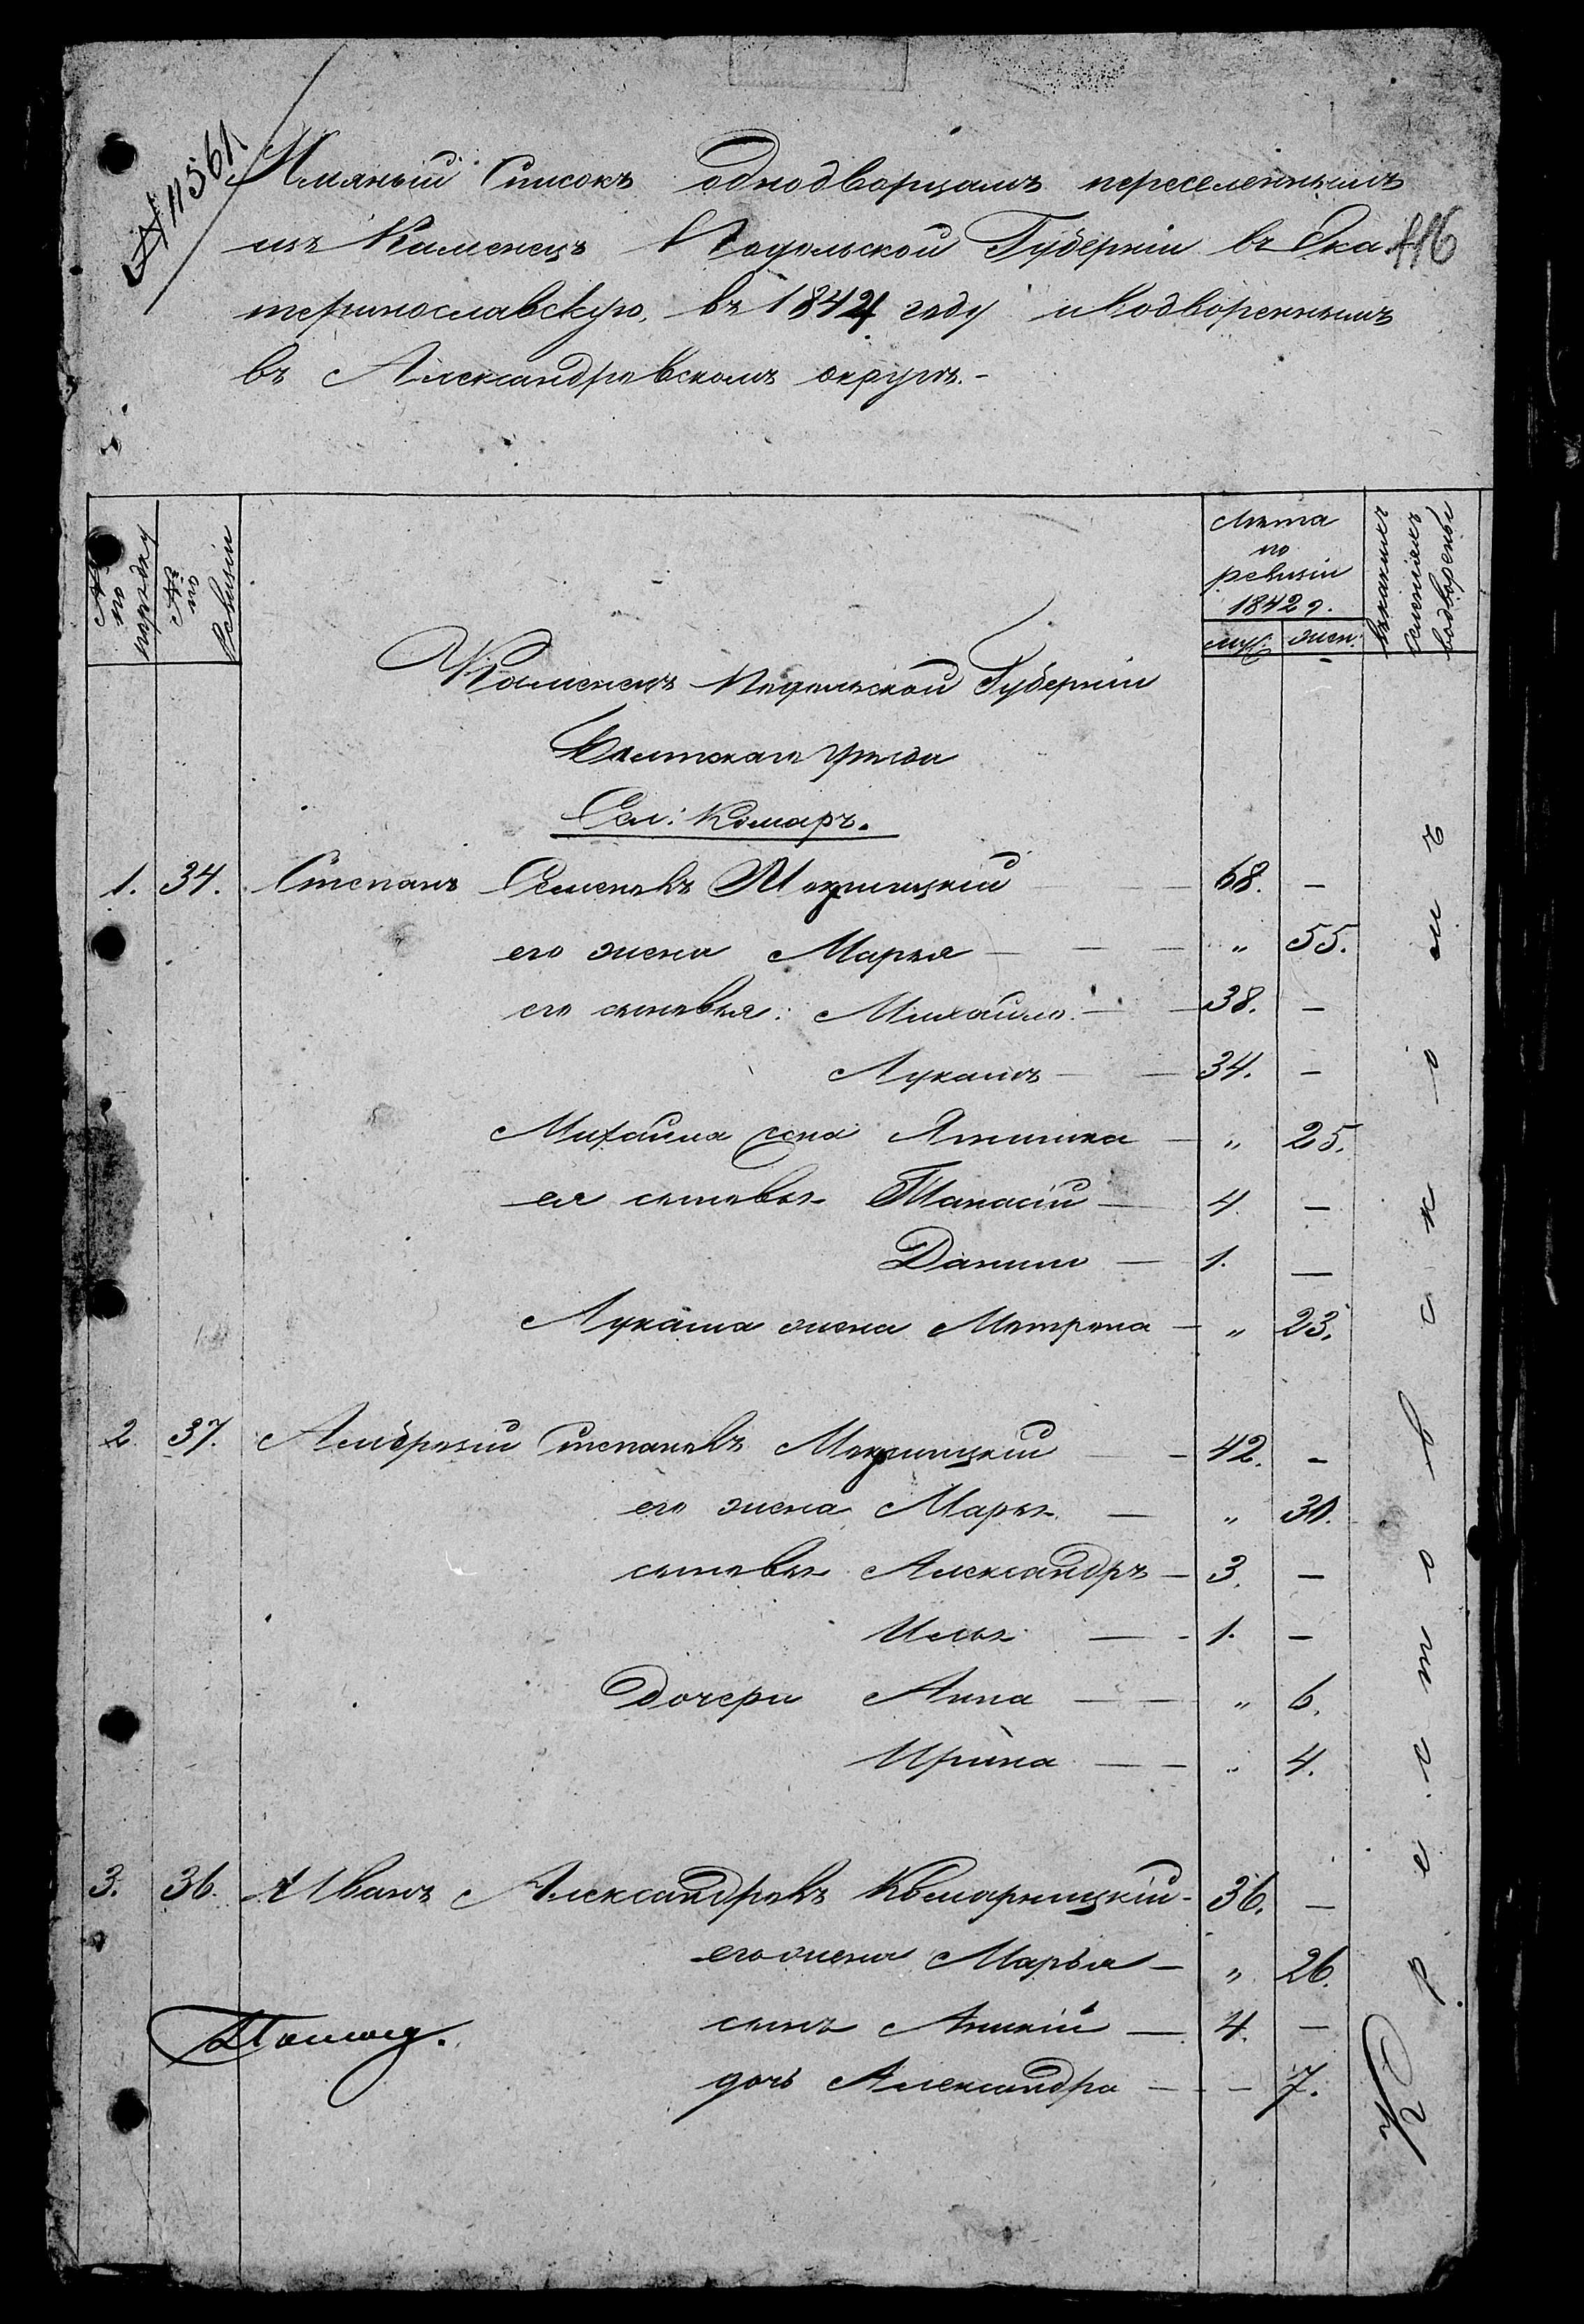 № 11561
Имяный Списокъ однодворцамъ переселеннымъ
изъ Каменецъ Подольской Губерніи въ Ека
116
теринославскую, въ 1844 году и водвореннымъ
въ Александровскомъ округѣ.-
№ по порядку
№ по Ревизіи
Лѣта
по
ревизіи
1842 г.
муж. жен.
въ какихъ
селеніяхъ
водворены
Каменецъ Подольской Губерніи
Балтскаго уѣзда
Сел: Комаръ.
1. 34. Степанъ Семеновъ 68. —
его жена Марья — " 55.
его сыновья: Михайло — 38. —
Лукашъ — 34. —
Михайла жена — " 25.
ея сыновья — 4 —
Данило — 1. —
Лукаша жена Мотрона — " 23.
2. 37. Амброзій Степановъ — 42. —
его жена Марья — " 30.
сыновья Александръ — 3. —
Илья — 1. —
Дочери Анна — " 6.
Ирина — " 4.
3. 36. Иванъ Александровъ Комарницкій - 36. —
его жена Марья — " 26.
сынъ — 4. —
дочь Александра — - 7.